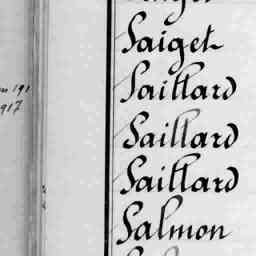 Saiget
Saillard
Saillard
Saillard
Salmon